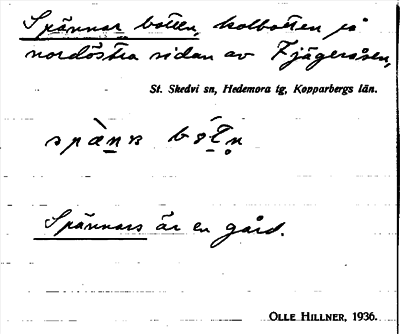 Spännar botten, kolbotten på
nordöstra sidan av Fjägeråsen,
St. Skedvi sn, Hedemora tg, Kopparbergs län.
spä̀ns bót̲n̥
Spännars är en gård.
OLLE HILLNER, 1936.